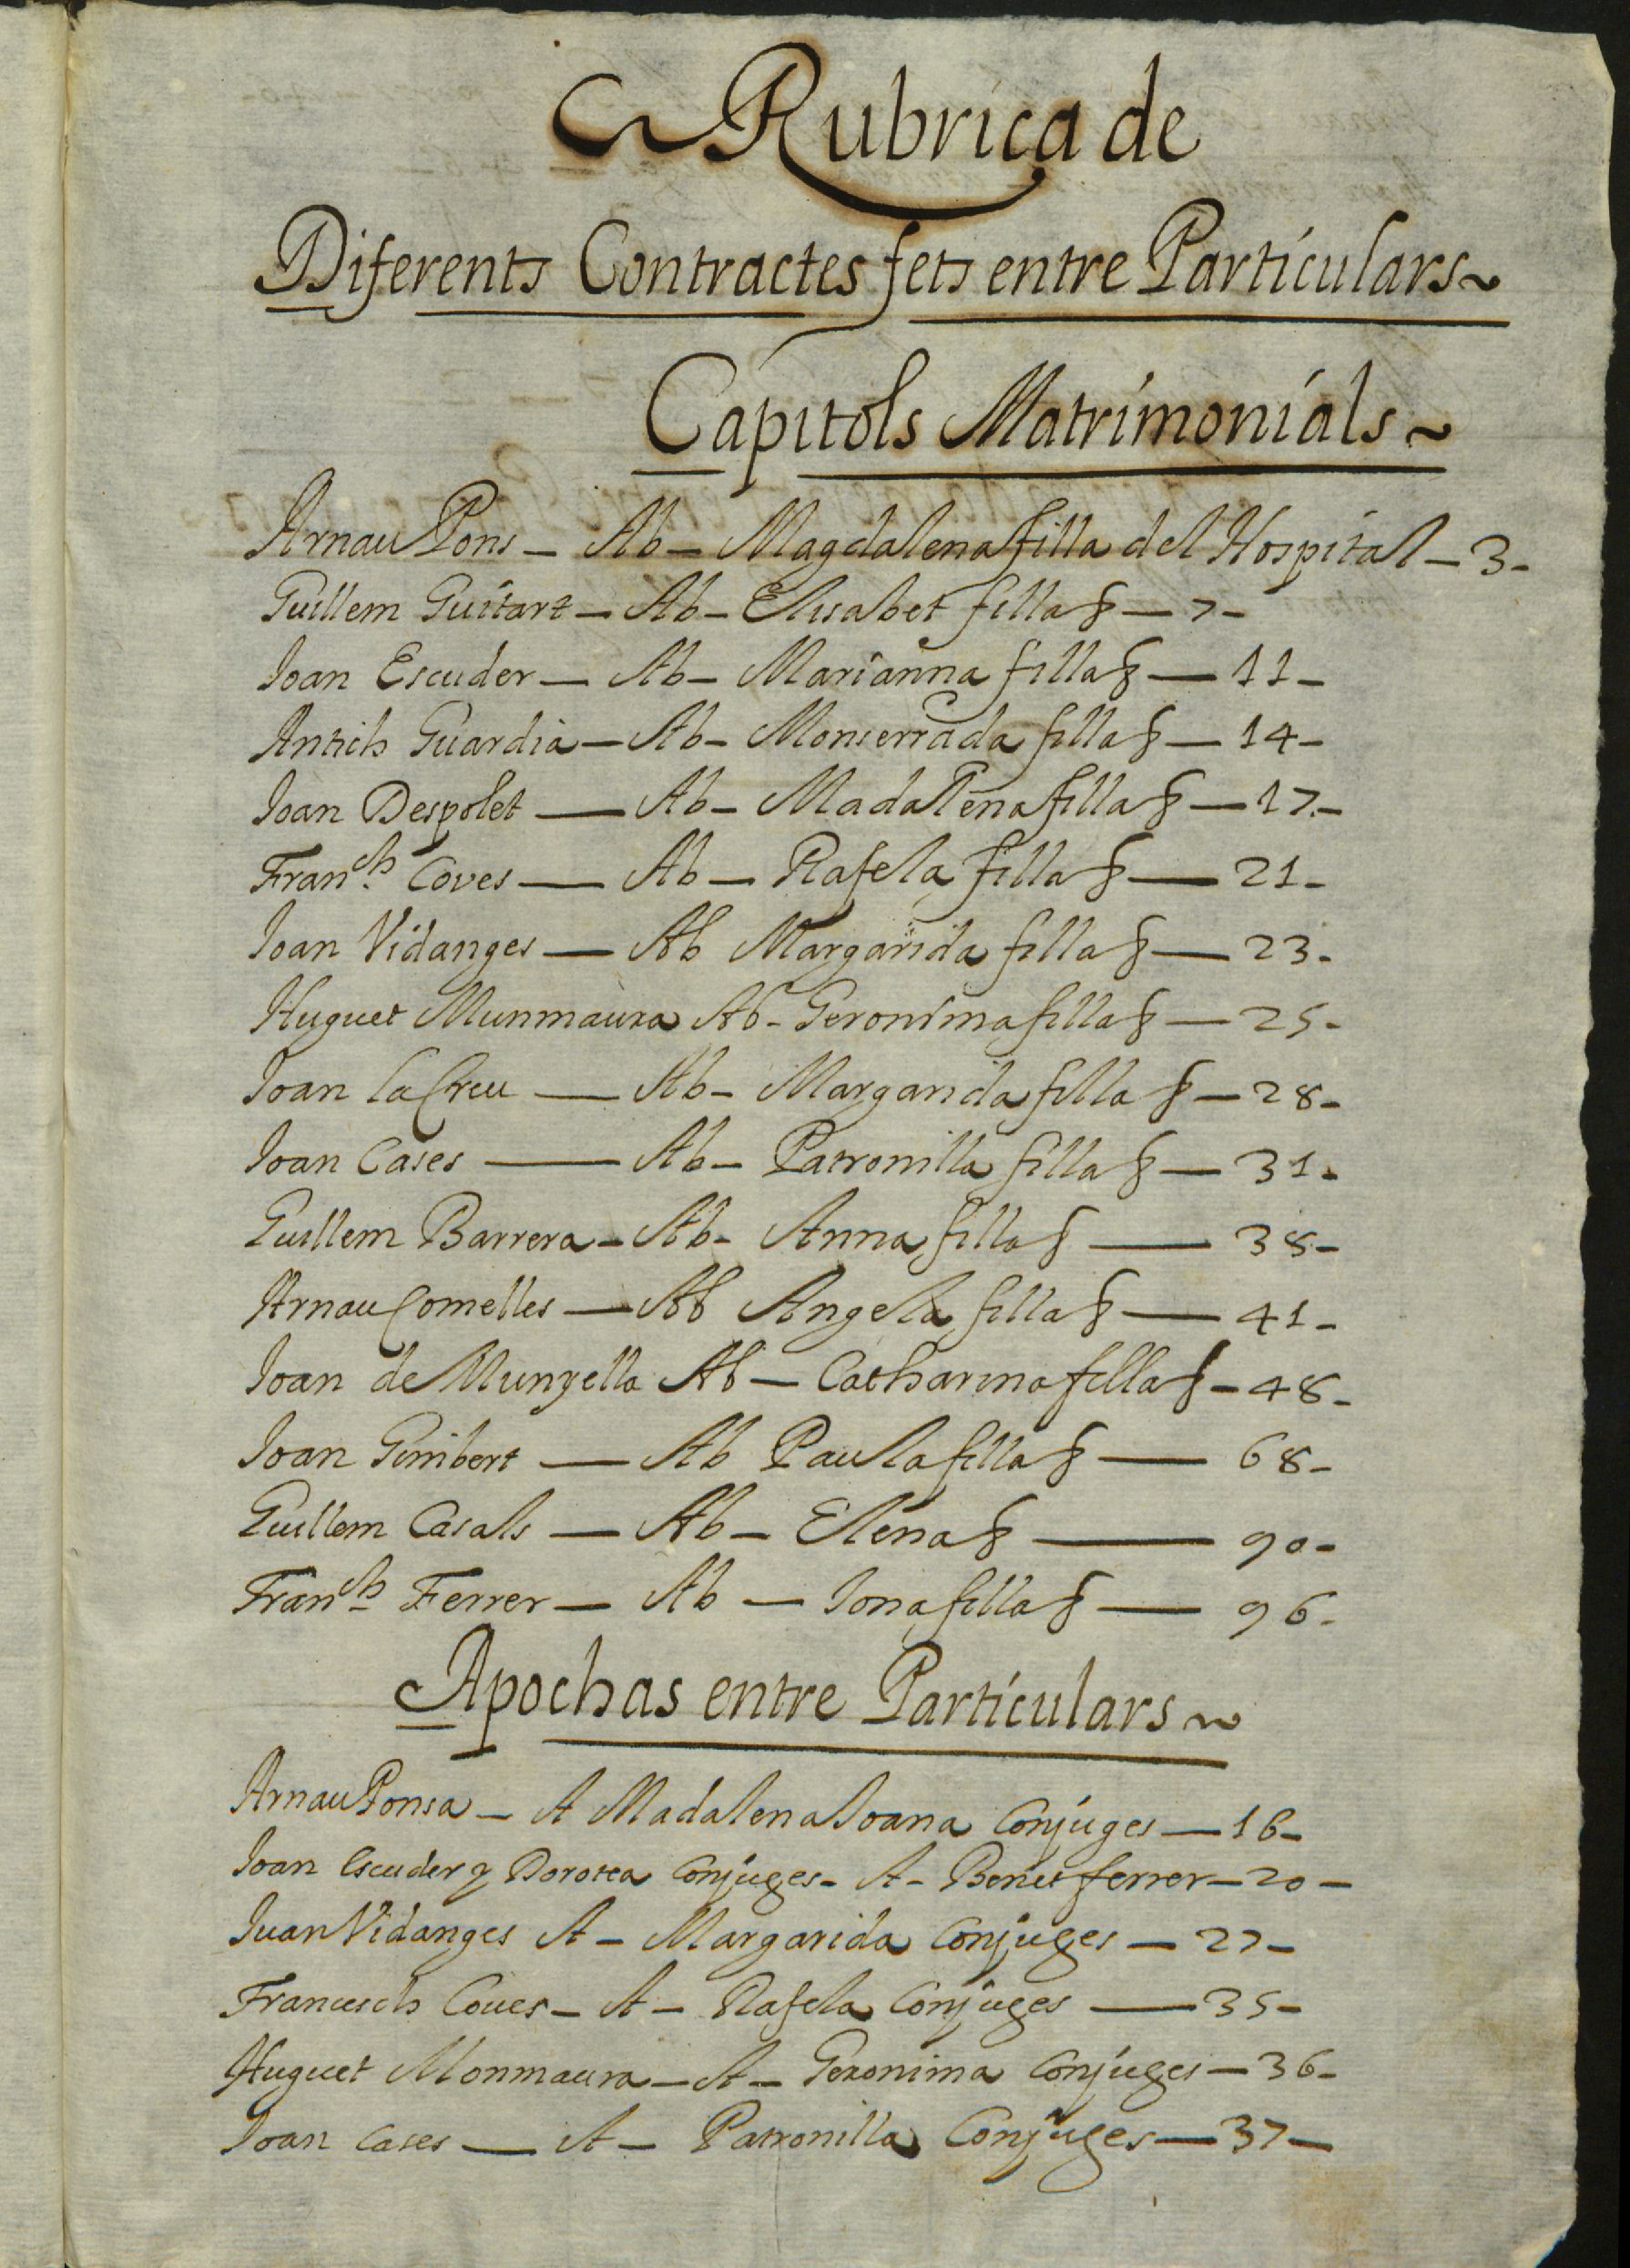 Rubrica de
Diferents Contractes fets entre Particulars~
Capitols Matrimonials~
Arnau Pons — Ab — Magdalena filla del Hospital — 3 -
Guillem Guitart — Ab — Elisabet filla & — 7 -
Joan Escuder — Ab — Marianna filla & — 11 -
Antich Guardia — Ab — Monserrada filla & — 14 -
Joan Despolet — Ab — Madalena filla & — 17. -
Franch. Coves — Ab — Rafela filla & — 21 -
Joan Vidanges — Ab Margarida filla & — 23 -
Huguet Munmaura Ab - Geronima filla & — 25 -
Joan la Creu — Ab — Margarida filla & — 28 -
Joan Cases — Ab — Patronilla filla & — 31 -
Guillem Barrera — Ab - Anna filla & — 38 -
Arnau Comelles — Ab Angela filla & — 41 -
Joan de Munyella Ab — Catharina filla & - 48 -
Joan Gimbert — Ab Paula filla & — 68 -
Guillem Casals — Ab — Elena & — 90 -
Franch Ferrer — Ab — Jona filla & — 96 -
Apochas entre Particulars~
Arnau Ponsa — A Madalena Joana Conjuges — 16 -
Joan Escuder y Dorotea Conjuges - A - Benet ferrer — 20 -
Juan Vidanges A — Margarida Conjuges — 27 -
Francesch Coues — A — Rafela Conjuges — 35 -
Huguet Monmaura — A — Geronima Conjuges — 36 -
Joan Cases — A — Patronilla Conjuges — 37 -